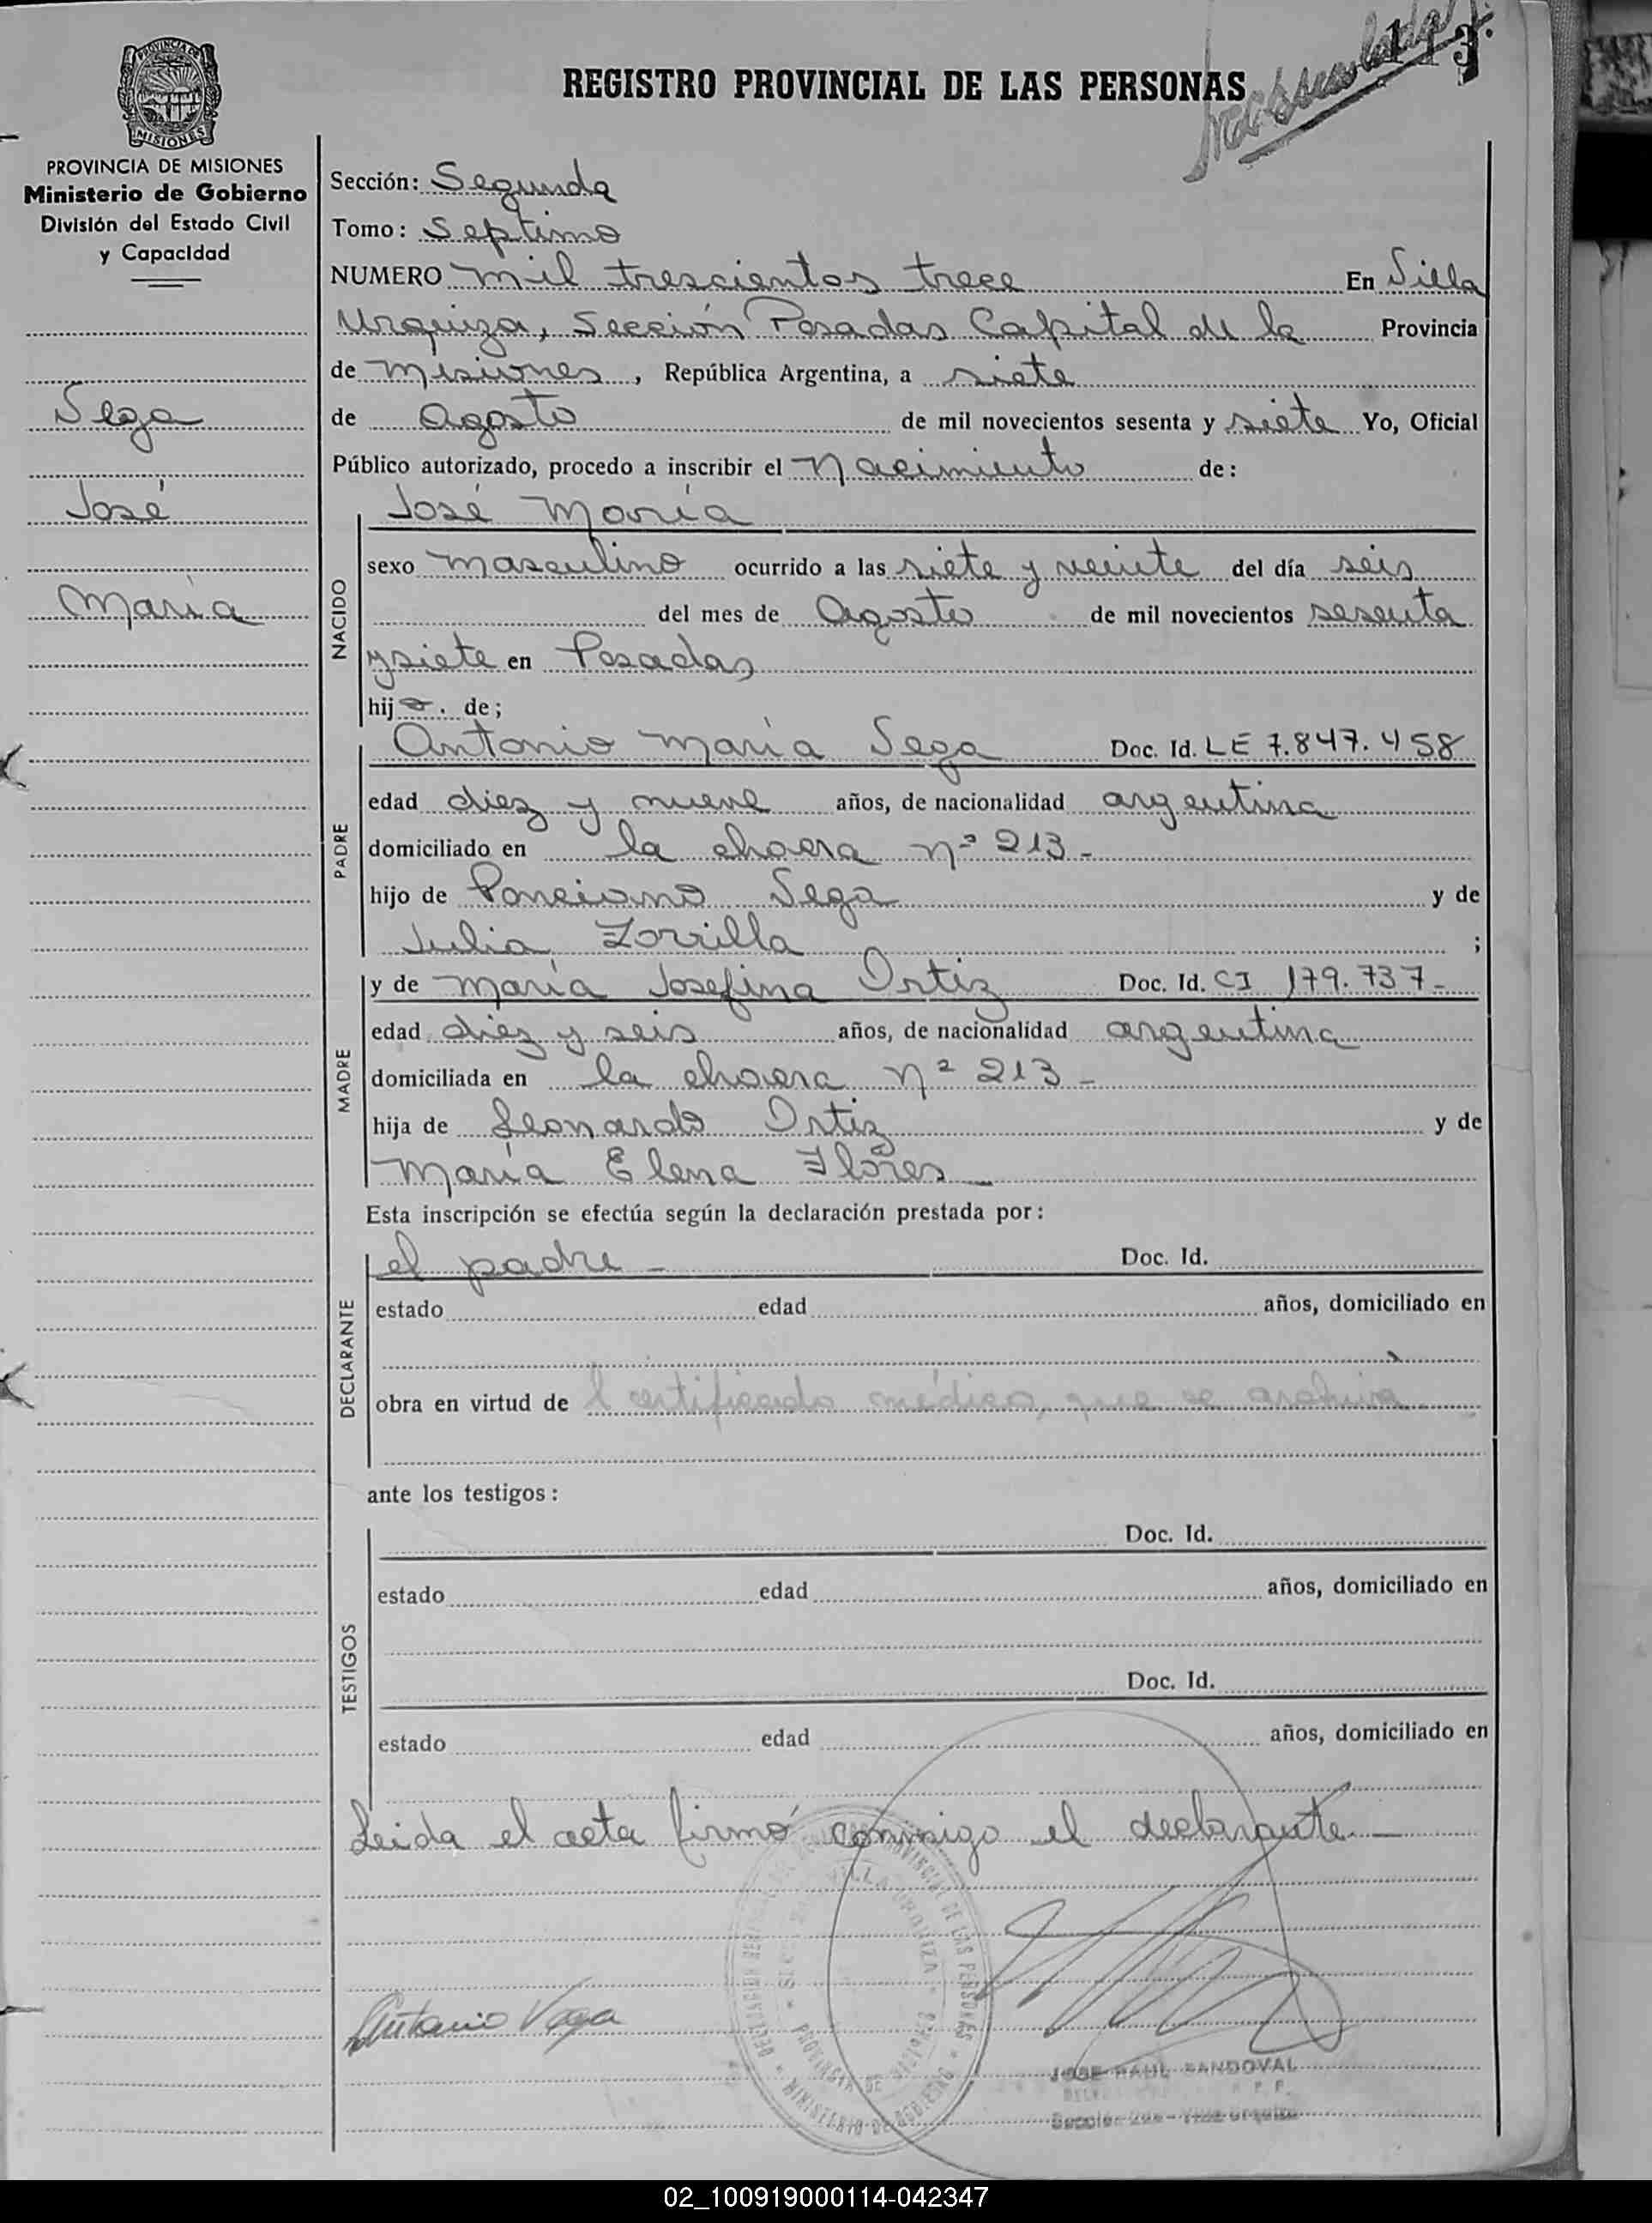 113
REGISTRO PROVINCIAL DE LAS PERSONAS
PROVINCIA DE MISIONES
MISIONES
PROVINCIA DE MISIONES
Ministerio de Gobierno
División del Estado Civil
y Capacidad
Vega
José
María
Sección: Segunda
Tomo: Septimo
NUMERO mil trescientos trece En Villa
Urquiza, Sección Posadas Capital de la Provincia
de Misiones, República Argentina, a siete
de Agosto de mil novecientos sesenta y siete Yo, Oficial
Público autorizado, procedo a inscribir el Nacimiento de:
NACIDO
José María
sexo masculino ocurrido a las siete y veinte del día seis
del mes de Agosto de mil novecientos sesenta
y siete en Posadas
hijo. de;
PADRE
Antonio María Vega Doc. Id. LE 7.847.458
edad diez y nueve años, de nacionalidad argentina
domiciliado en la chacra nº 213 -
hijo de Ponciano Vega y de
Julia Zorrilla ;
MADRE
y de María Josefina Ortiz Doc. Id. CI 179.737-
edad diez y seis años, de nacionalidad argentina
domiciliada en la chacra nº 213 -
hija de Leonardo Ortiz y de
María Elena Flores
Esta inscripción se efectúa según la declaración prestada por:
DECLARANTE
el padre - Doc. Id.
estado edad años, domiciliado en
obra en virtud de l certificado médico, que se archiva
ante los testigos:
TESTIGOS
Doc. Id.
estado edad años, domiciliado en
Doc. Id.
estado edad años, domiciliado en
Leida el acta firmó conmigo el declarante. -
Antonio Vega
VILLA URQUIZA
PROVINCIA DE MISIONES
MINISTERIO DE GOBIERNO
PROVINCIAL DE LAS PERSONAS
JOSE RAUL SANDOVAL
Sección 2da - Villa Urquiza
02_100919000114-042347